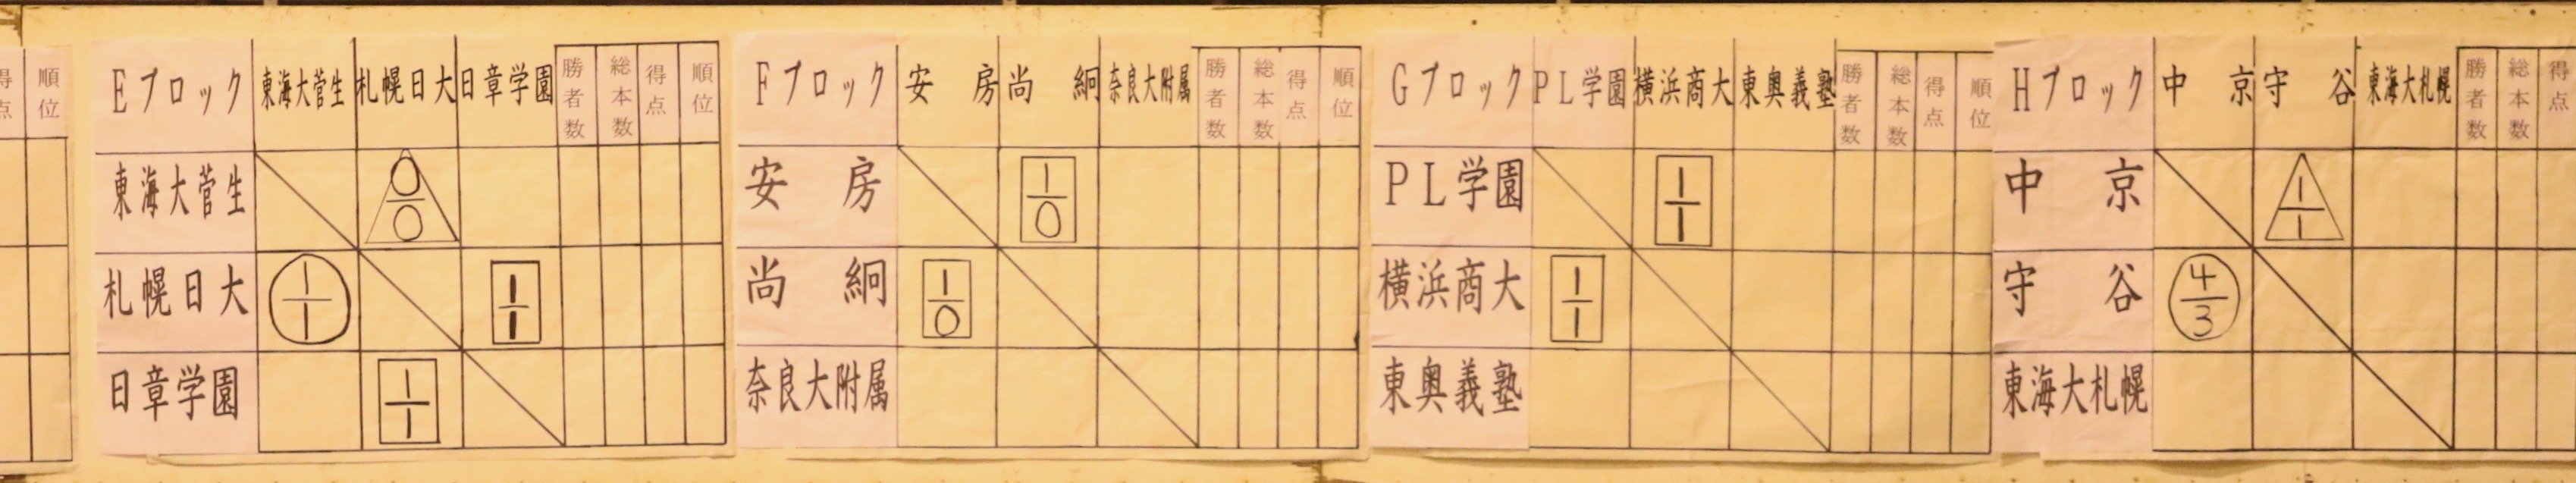 得点 順位
Eブロック 東海大菅生 札幌日大 日章学園 勝者数 総本数 得点 順位
東海大菅生 0/0
札幌日大 1/1 1/1
日章学園 1/1
Fブロック 安房 尚絅 奈良大附属 勝者数 総本数 得点 順位
安房 1/0
尚絅 1/0
奈良大附属
Gブロック PL学園 横浜商大 東奥義塾 勝者数 総本数 得点 順位
PL学園 1/1
横浜商大 1/1
東奥義塾
Hブロック 中京 守谷 東海大札幌 勝者数 総本数 得点
中京 1/1
守谷 4/3
東海大札幌